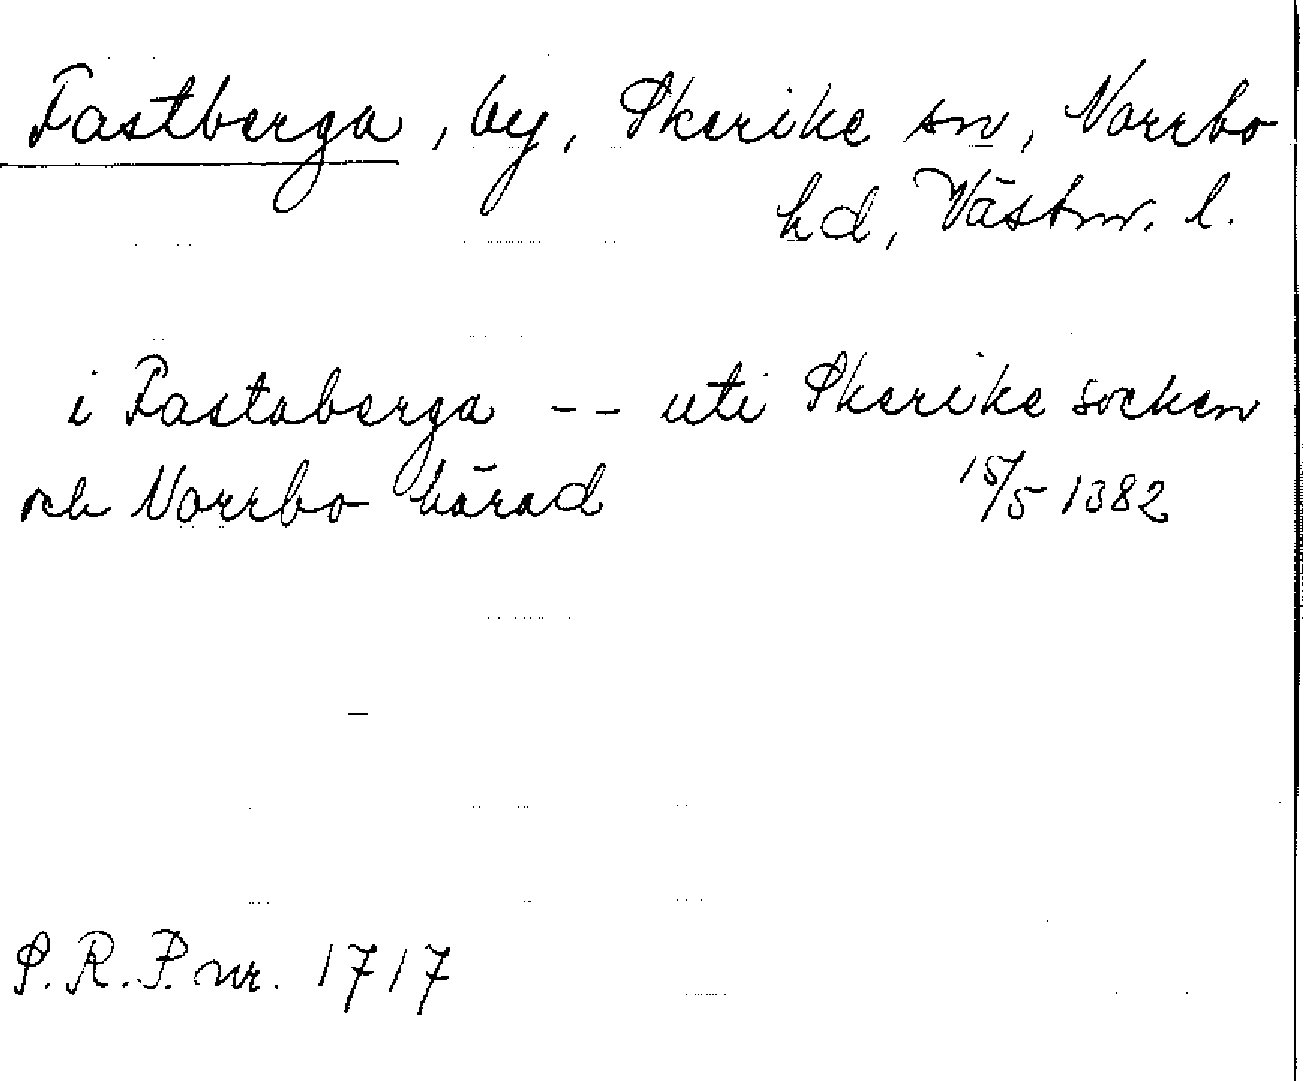 Fastberga, by, Skerike sn, Norrbo
hd, Västm. l.
i Fastaberga -- uti Skerike socken
och Norrbo härad 15/5 1382
S.R.P. nr. 1717